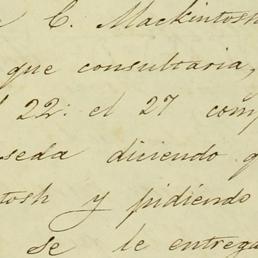 C. Mackintosh
que consultaria,
22: el 27 com
seda diciendo q
tosh y pidiendo
se le entrega